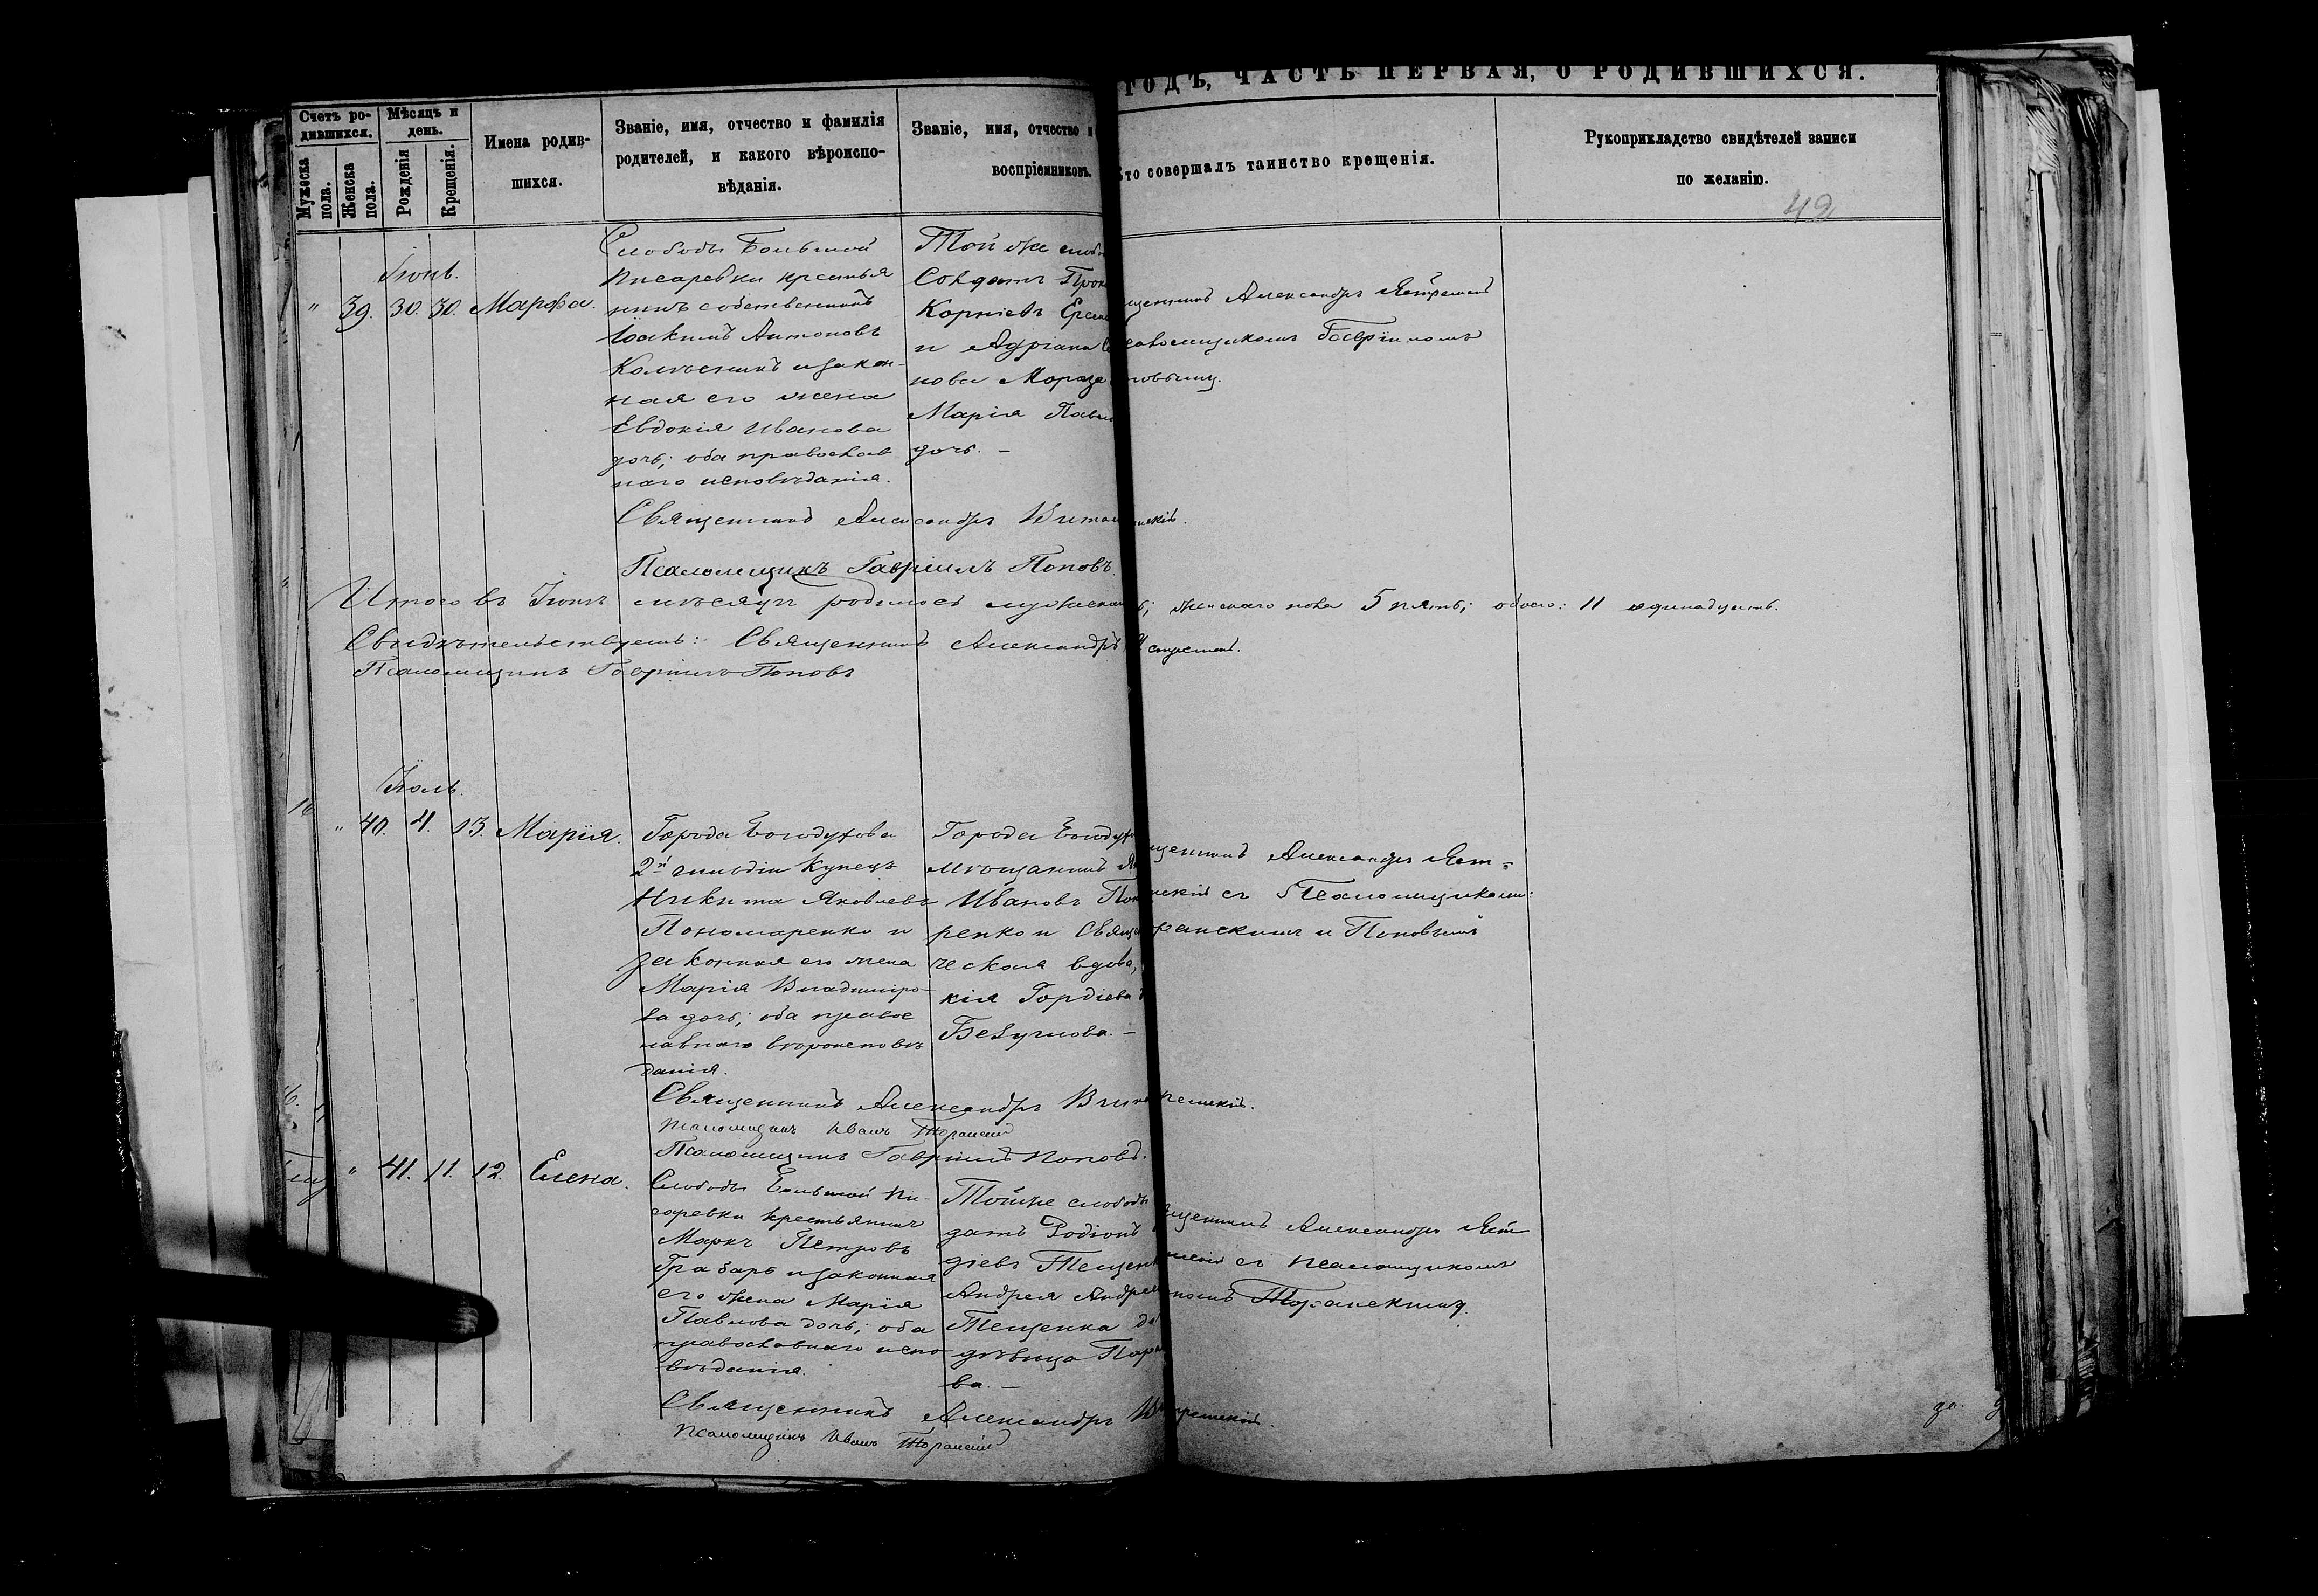 ГОДЪ, ЧАСТЬ ПЕРВАЯ, О РОДИВШИХСЯ.
Счетъ ро-
дившихся.
Мужеска
пола.
Женска
пола.
Мѣсяцъ и
день.
Рожденія
Крещенія.
Имена родив-
шихся.
Званіе, имя, отчество и фамилія
родителей, и какого вѣроиспо-
вѣданія.
Званіе, имя, отчество и
воспріемниковъ.
то совершалъ таинство крещенія.
Рукоприкладство свидѣтелей записи
по желанію.
49
Іюнь.
" 39. 30. 30. Марфа.
Слободы Большой
Писаревки крестья
нинъ собственникъ
Іоакимъ Антоновъ
и закон-
ная его жена
Евдокія Иванова
дочь; оба православ
наго исповѣданія.
Той же слоб
Солдатъ Прок
Корніевъ
и Адріана
нова Мороза
Марія Павл
дочь. –
щенникъ Александръ
Гавріиломъ
повымъ.
Священникъ Александръ
Псаломщикъ Гавріилъ Поповъ.
Итого въ Іюнѣ мѣсяцѣ родилось мужеска женскаго пола 5 пять; обоего: 11 одинадцать.
Свидѣтельствуемъ: Священникъ Александръ
Псаломщикъ Гавріилъ Поповъ
Іюль.
" 40. 4. 13. Марія.
Города Богодухова
2й гильдіи Купецъ
Никита Яковлевъ
Пономаренко и
законная его жена
Марія Владиміро-
ва дочь; оба правос
лавнаго вѣроисповѣ
данія.
Города Богоду
мѣщанинъ
Ивановъ Пон
ренко и Свящ
ческая вдова,
кія Гордіева
щенникъ Александръ Яст-
скій съ Псаломщиками:
ранскимъ и Поповымъ
Священникъ Александръ
Псаломщикъ Иванъ
Псаломщикъ Гавріилъ Поповъ.
" 41. 11. 12. Елена.
Слободы Большой Пи-
саревки крестьянинъ
Маркъ Петровъ
Грабарь и законная
его жена Марія
Павлова дочь; оба
православнаго испо
вѣданія.
Той же слободы
датъ Родіонъ
діевъ Тещен
Андрея Андрее
Тещенка
дѣвица Пар
ва. –
щенникъ Александръ Яст
съ псаломщикомъ
Священникъ Александръ
Псаломщикъ Иванъ